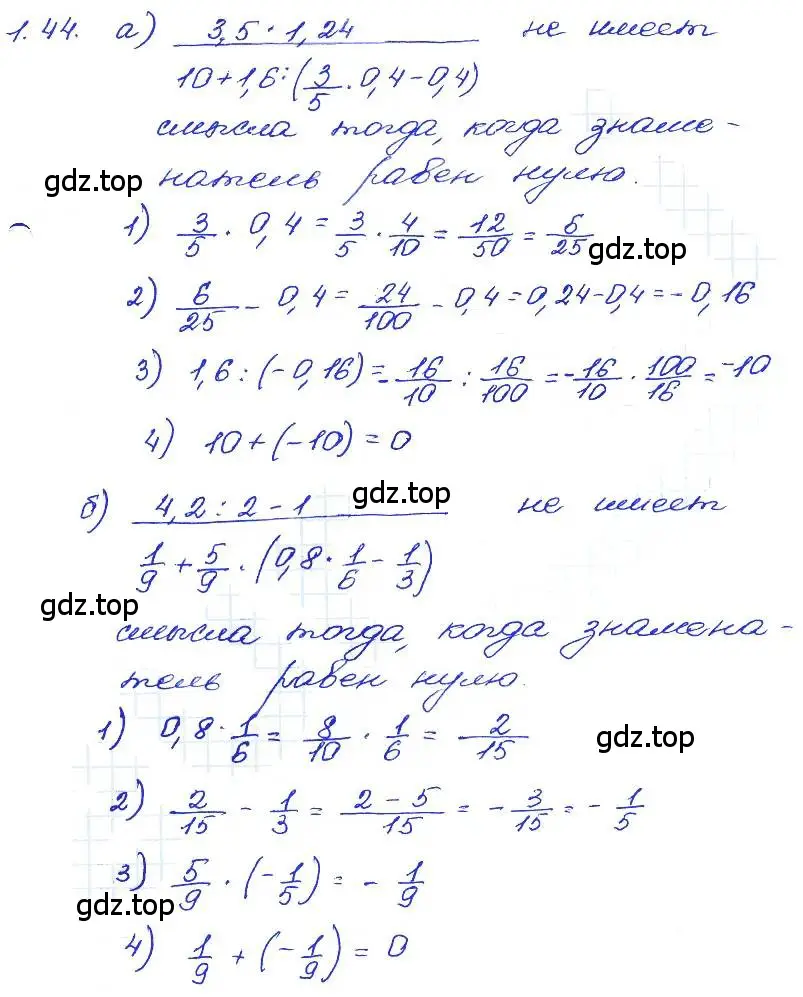 1.44. а) 3,5 · 1,24 / 10 + 1,6 : (3/5 · 0,4 − 0,4) не имеет
смысла тогда, когда знаме-
gdz.top
натель равен нулю.
1) 3/5 · 0,4 = 3/5 · 4/10 = 12/50 = 6/25
gdz.top
2) 6/25 − 0,4 = 24/100 − 0,4 = 0,24 − 0,4 = −0,16
3) 1,6 : (−0,16) = −16/10 : 16/100 = −16/10 · 100/16 = −10
4) 10 + (−10) = 0
gdz.top
б) 4,2 : 2 − 1 / 1/9 + 5/9 · (0,8 · 1/6 − 1/3) не имеет
gdz.top
смысла тогда, когда знамена-
тель равен нулю.
1) 0,8 · 1/6 = 8/10 · 1/6 = 2/15
gdz.top
2) 2/15 − 1/3 = 2 − 5/15 = −3/15 = −1/5
3) 5/9 · (−1/5) = −1/9
gdz.top
4) 1/9 + (−1/9) = 0